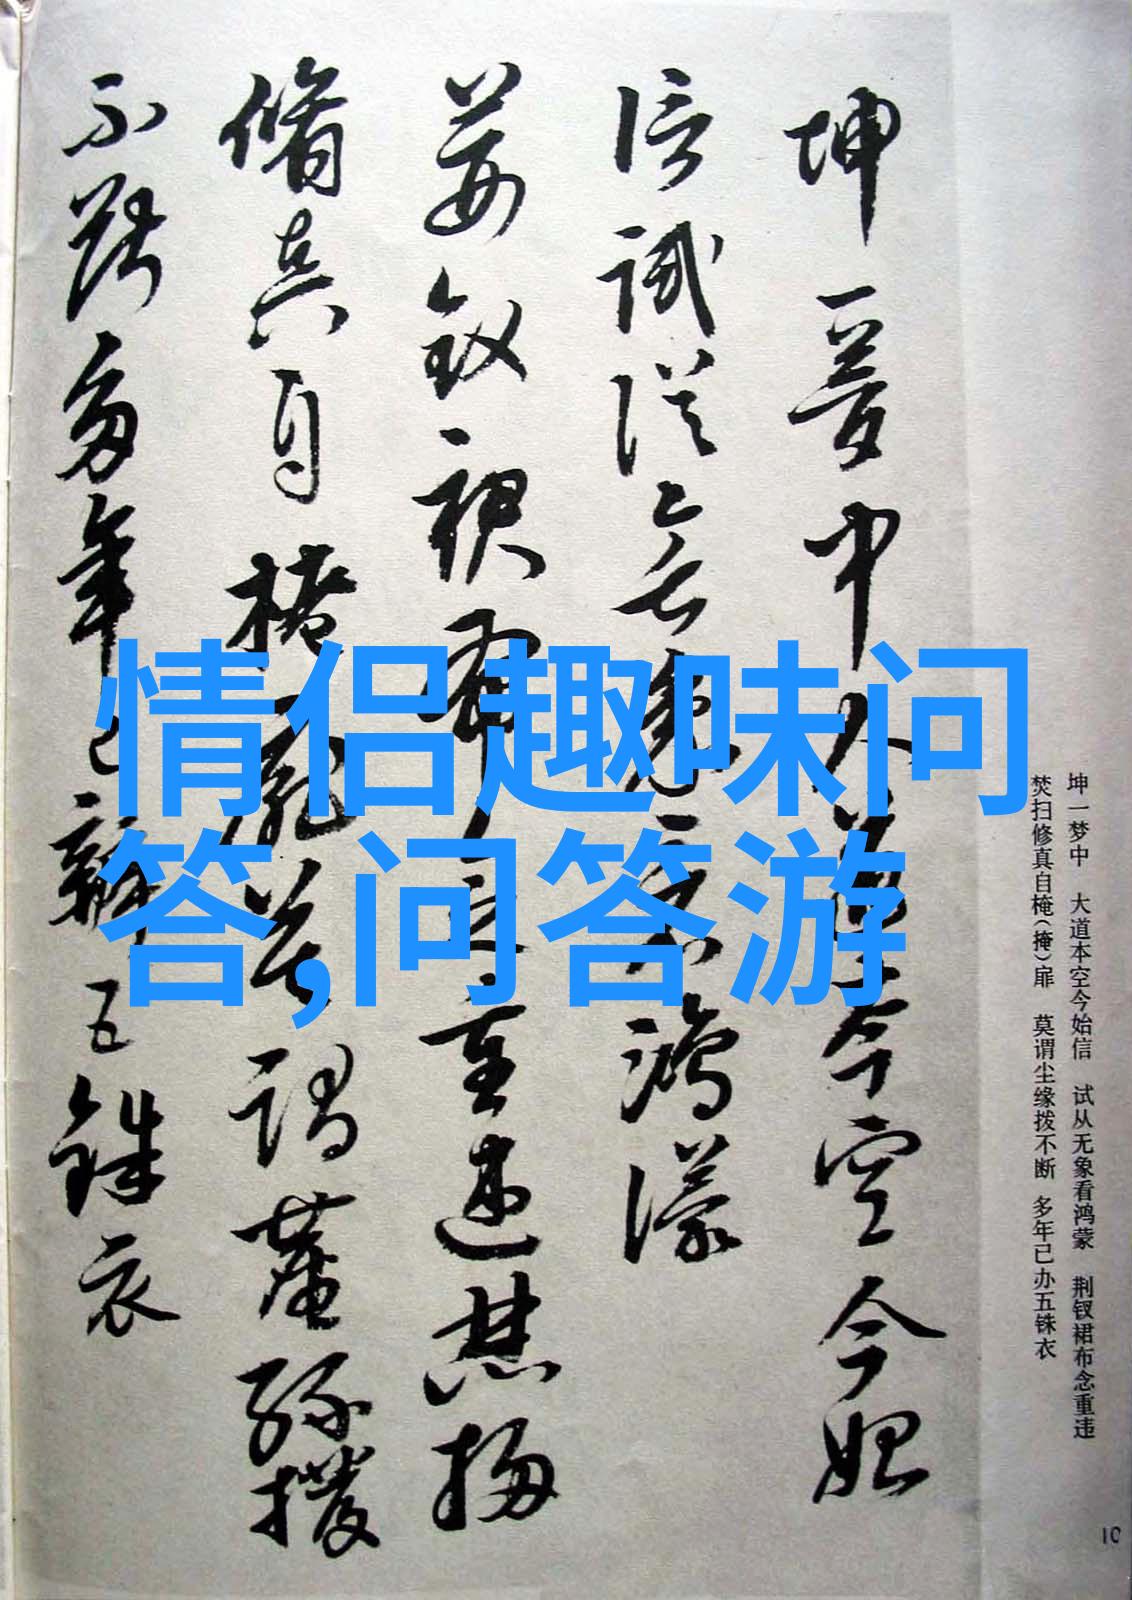 坤一夢中大道本空今始
信試從無象看鴻濛
荊釵裙布念重違焚掃
修真自掩扉莫謂塵緣撥
不斷多年已辦五銖衣
情侣趣味问
答,问答游
坤一梦中 大道本空今始信 试从无象看鸿蒙 荆钗裙布念重违
焚扫修真自椸(掩)扉 莫谓尘缘拨不断 多年已办五铢衣
10